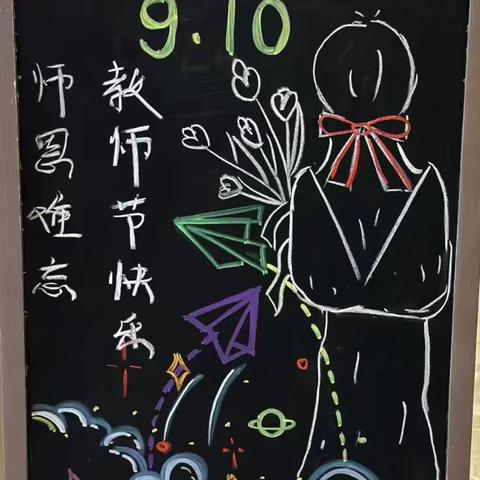 9.10
教师节快乐
师恩难忘